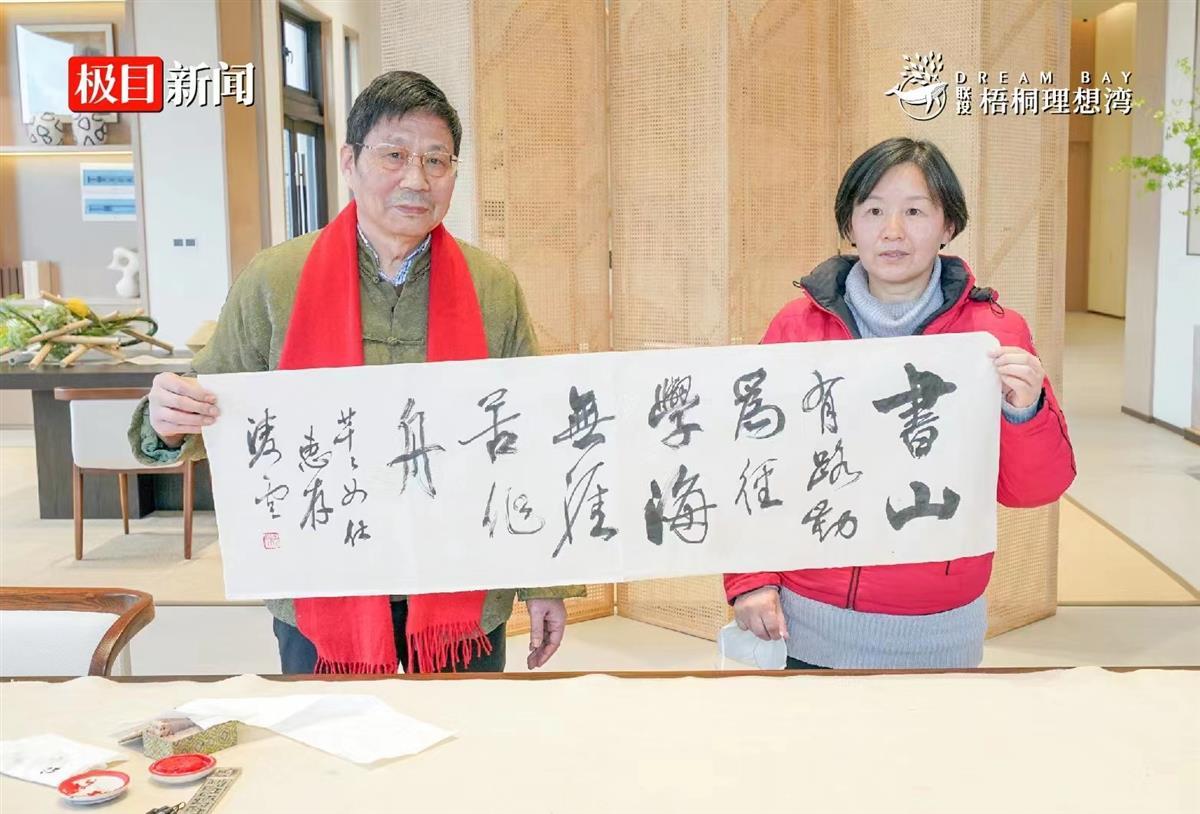 极目新闻
DREAM BAY
联投 梧桐理想湾
書山
有路勤
為徑
學海
無涯
苦作
舟
女仕
惠存